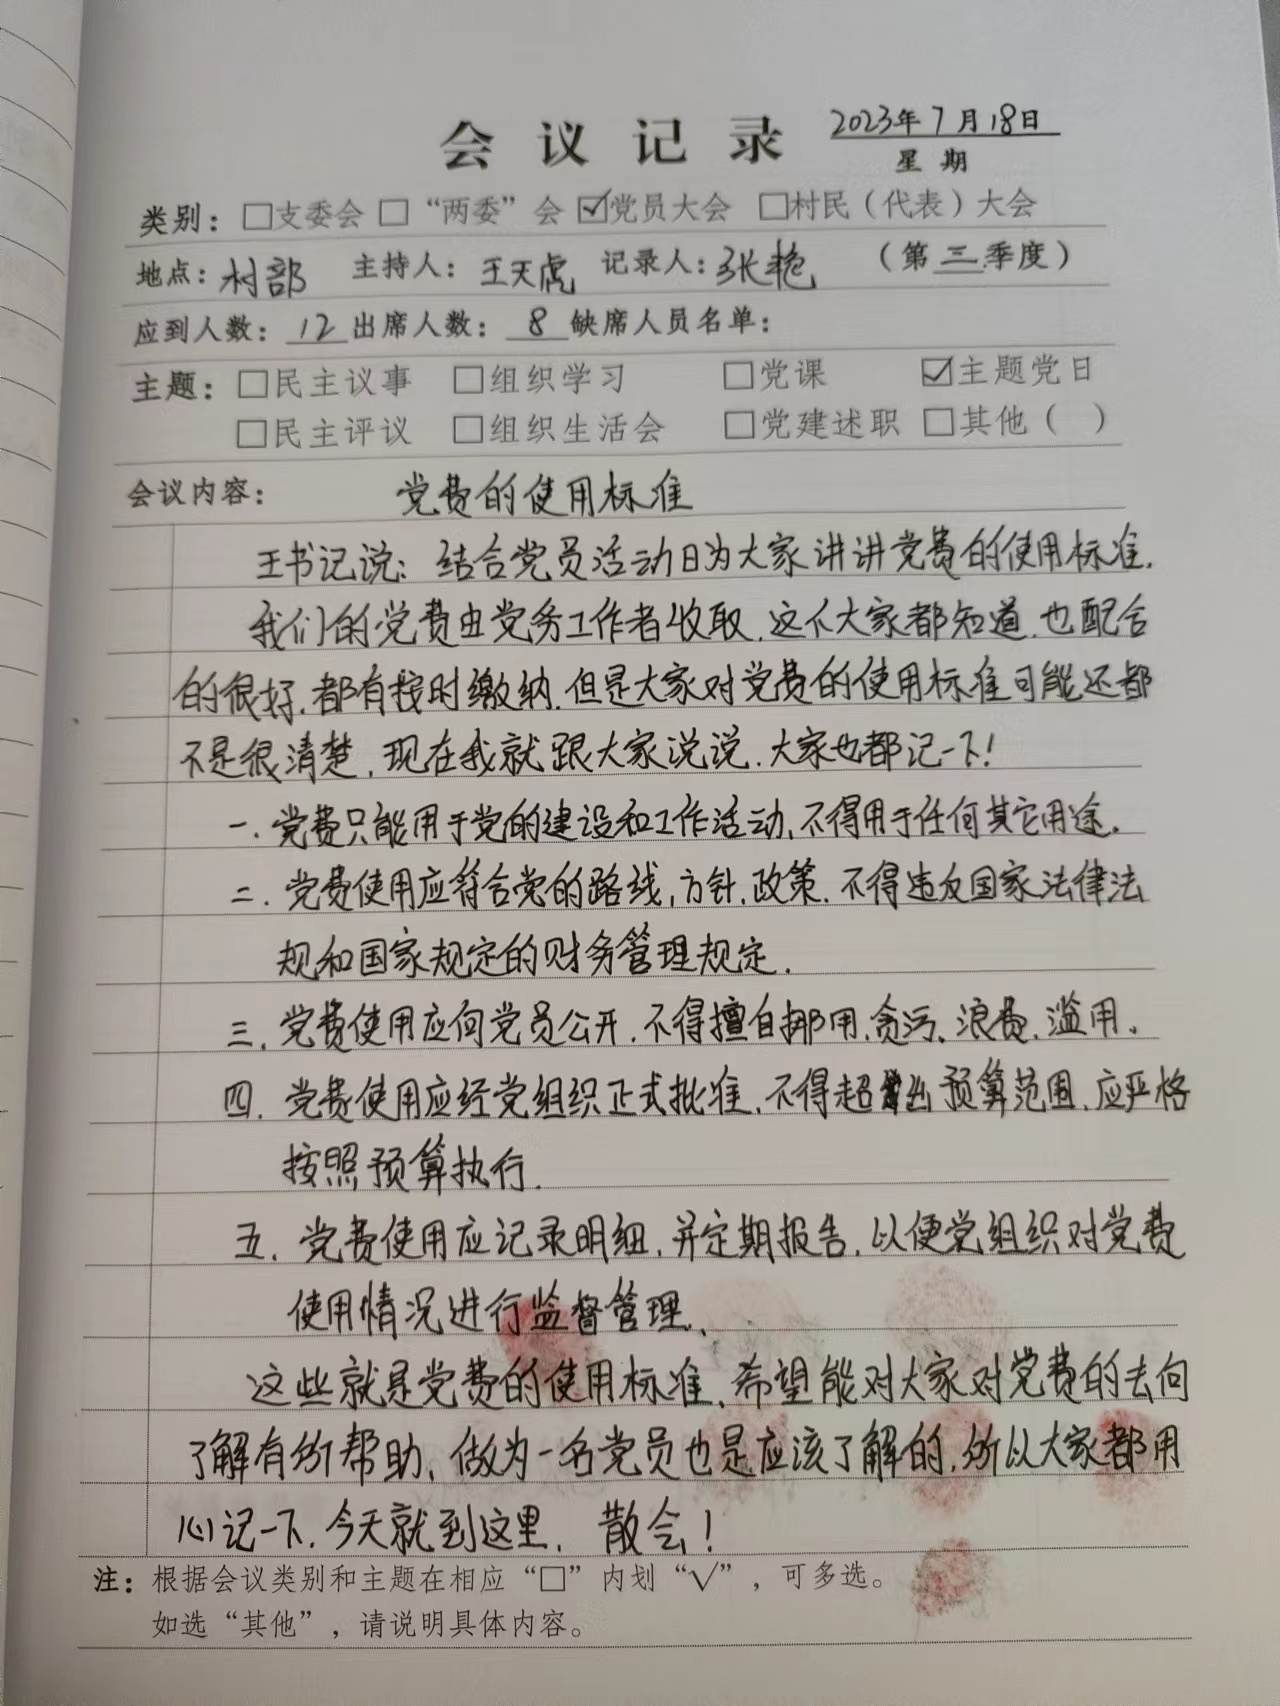 会议记录 2023年7月18日
星期
类别：□支委会 □“两委”会 ☑党员大会 □村民（代表）大会
地点：村部 主持人：王天虎 记录人：张艳 （第三季度）
应到人数：12 出席人数：8 缺席人员名单：
主题：□民主议事 □组织学习 □党课 ☑主题党日
□民主评议 □组织生活会 □党建述职 □其他（ ）
会议内容： 党费的使用标准
王书记说：结合党员活动日为大家讲讲党费的使用标准.
我们的党费由党务工作者收取.这个大家都知道.也配合
的很好.都有按时缴纳.但是大家对党费的使用标准可能还都
不是很清楚,现在我就跟大家说说.大家也都记一下!
一.党费只能用于党的建设和工作活动、不得用于任何其它用途.
二.党费使用应符合党的路线,方针.政策.不得违反国家法律法
规和国家规定的财务管理规定.
三.党费使用应向党员公开.不得擅自挪用.贪污、浪费.滥用.
四.党费使用应经党组织正式批准.不得超出预算范围.应严格
按照预算执行.
五.党费使用应记录明细.并定期报告.以便党组织对党费
使用情况进行监督管理、
这些就是党费的使用标准.希望能对大家对党费的去向
了解有所帮助、做为一名党员也是应该了解的.所以大家都用
心记一下.今天就到这里. 散会!
注：根据会议类别和主题在相应“□”内划“√”，可多选。
如选“其他”，请说明具体内容。